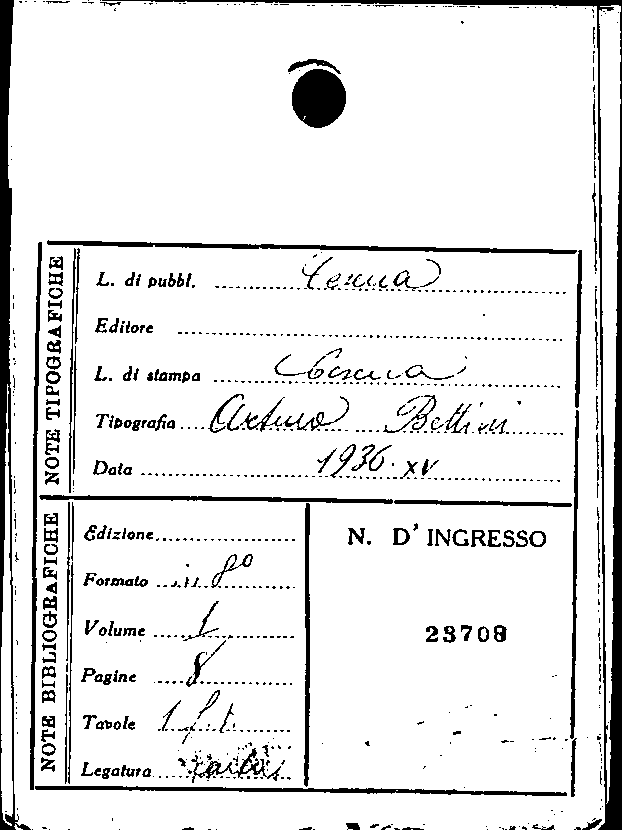 NOTE TIPOGRAFICHE
L. di pubbl. Cesena
Editore
L. di stampa Cesena
Tipografia Arturo Bettini
Data 1936. XV
NOTE BIBLIOGRAFICHE
Edizione
Formato in 8º
Volume 1
Pagine 8
Tavole 1 f. t.
Legatura
N. D' INGRESSO
23708